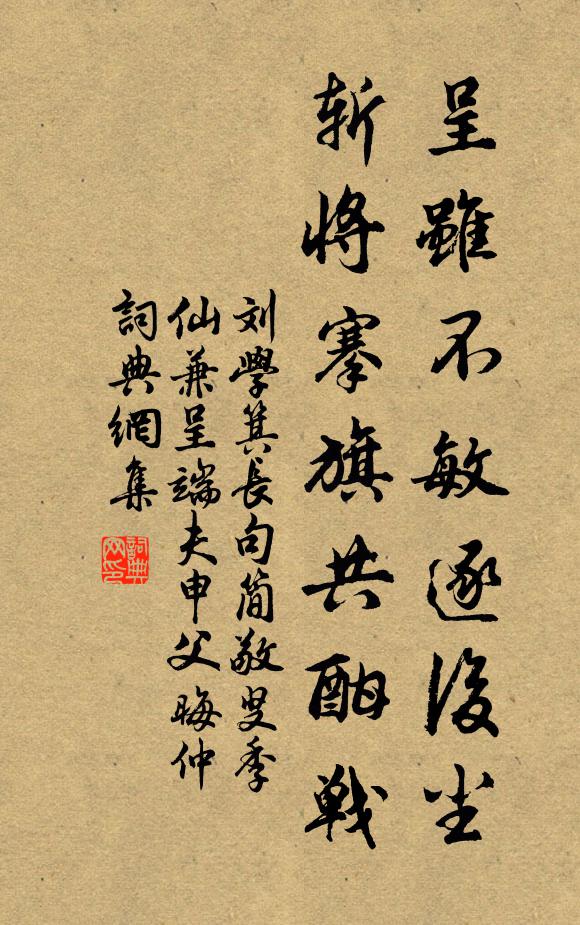 呈雖不敏逐後尘
斬将搴旗共酣戦
刘學箕長句簡敬叟季
仙兼呈端夫申父晦仲
詞典網集
詞典网印